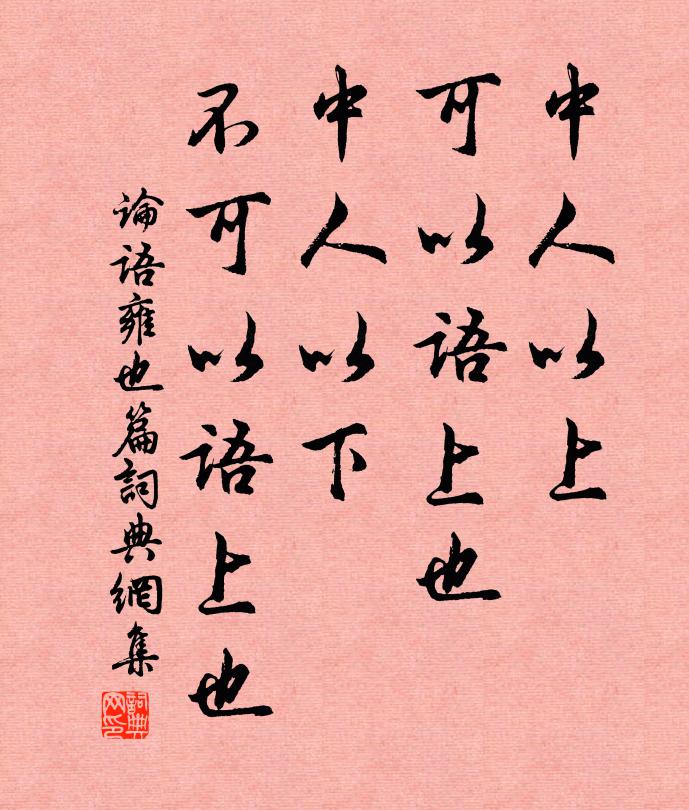 中人以上
可以語上也
中人以下
不可以語上也
論語雍也篇詞典網集
詞典
网印